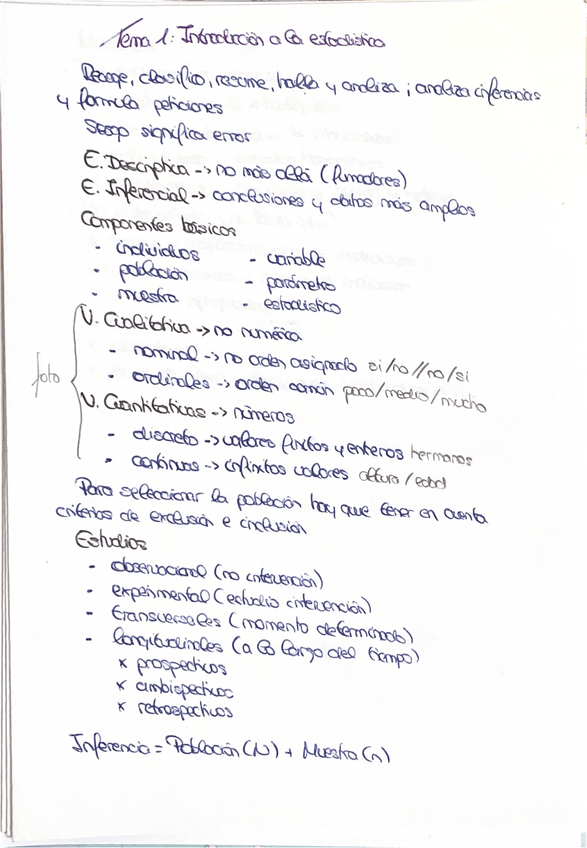 Tema 1: Introducción a la estadística
Recoge, clasifica, resume, halla y analiza; analiza inferencias
y formula peticiones
Sesgo significa error
E. Descriptiva -> no más allá (fumadores)
E. Inferencial -> conclusiones y datos más amplios
Componentes básicos
- individuos - variable
- población - parámetro
- muestra - estadístico
V. Cualitativa -> no numérica
- nominal -> no orden asignado si/no//no/si
foto
- ordinales -> orden común poco/medio/mucho
V. Cuantitativas -> números
- discreto -> valores finitos y enteros hermanos
- continuos -> infinitos valores altura/edad
Para seleccionar la población hay que tener en cuenta
criterios de exclusión e inclusión
Estudios
- observacional (no intervención)
- experimental (estudio intervención)
- transversales (momento determinado)
- longitudinales (a lo largo del tiempo)
x prospectivos
x ambispectivos
x retrospectivos
Inferencia = Población (N) + Muestra (n)